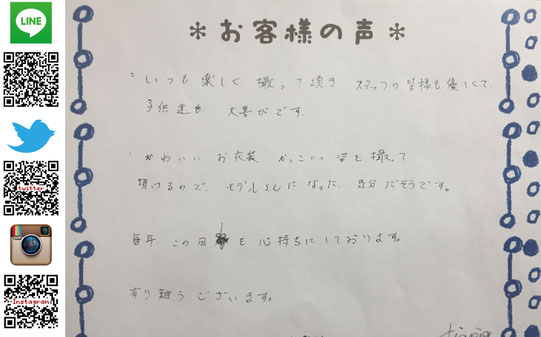 LINE
twitter
Instagram
＊お客様の声＊
・いつも楽しく、撮って頂き、スタッフの皆様も優しくて、
子供達も、大喜びです。
・かわいい お衣装、かっこいい 姿を撮って
頂けるので、モデルさんになった、気分だそうです。
毎年 この日を心待ちにしております。
有り難う ございます。